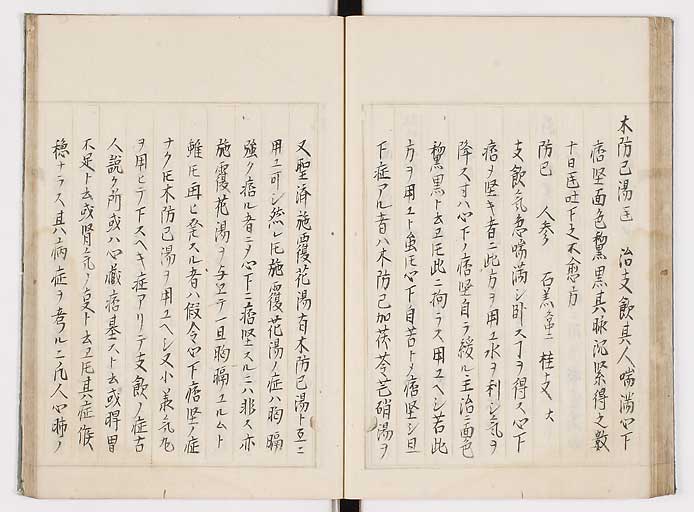 木防已湯 治支飲其人喘滿心下
痞堅面色黧黒其脉沉緊得之數
十日医吐下之不愈方
防已 人参 石羔 桂文 大
支飲気急喘滿シ卧ス丁ヲ得ス心下
痞メ堅キ者ニ此方ヲ用ユ水ヲ利シ気ヲ
降ス寸ハ心下ノ痞堅自ラ緩ル主治ニ面色
黧黒ト云ヿ此ニ拘ラス用ユヘシ若此
方ヲ用ユト虽𪜈心下自苦トメ痞堅シ且
下症アル者ハ木防已加茯苓芒硝湯ヲ
又聖済施覆花湯有木防已湯ト互ニ
用ユ可シ然レ𪜈施覆花湯ノ症ハ胸膈
強ク痞ル者ニヲ心下ニ痞堅スルニハ非ス亦
施覆花湯ヲ与ヱテ一旦胸膈ユルムト
雖𪜈再ヒ発スル者ハ假令心下痞堅ノ症
ナク𪜈木防已湯ヲ用ユヘシ又小
ヲ用ヒテ下スヘキ症アリテ支飲ノ症古
人説ク所或ハ心臓痞基スト云或腎胃
不足ト云或腎気ノ ト云ヱ𪜈其症候
穏ナラス其病症ヲ考ルニ凡人心肺ノ